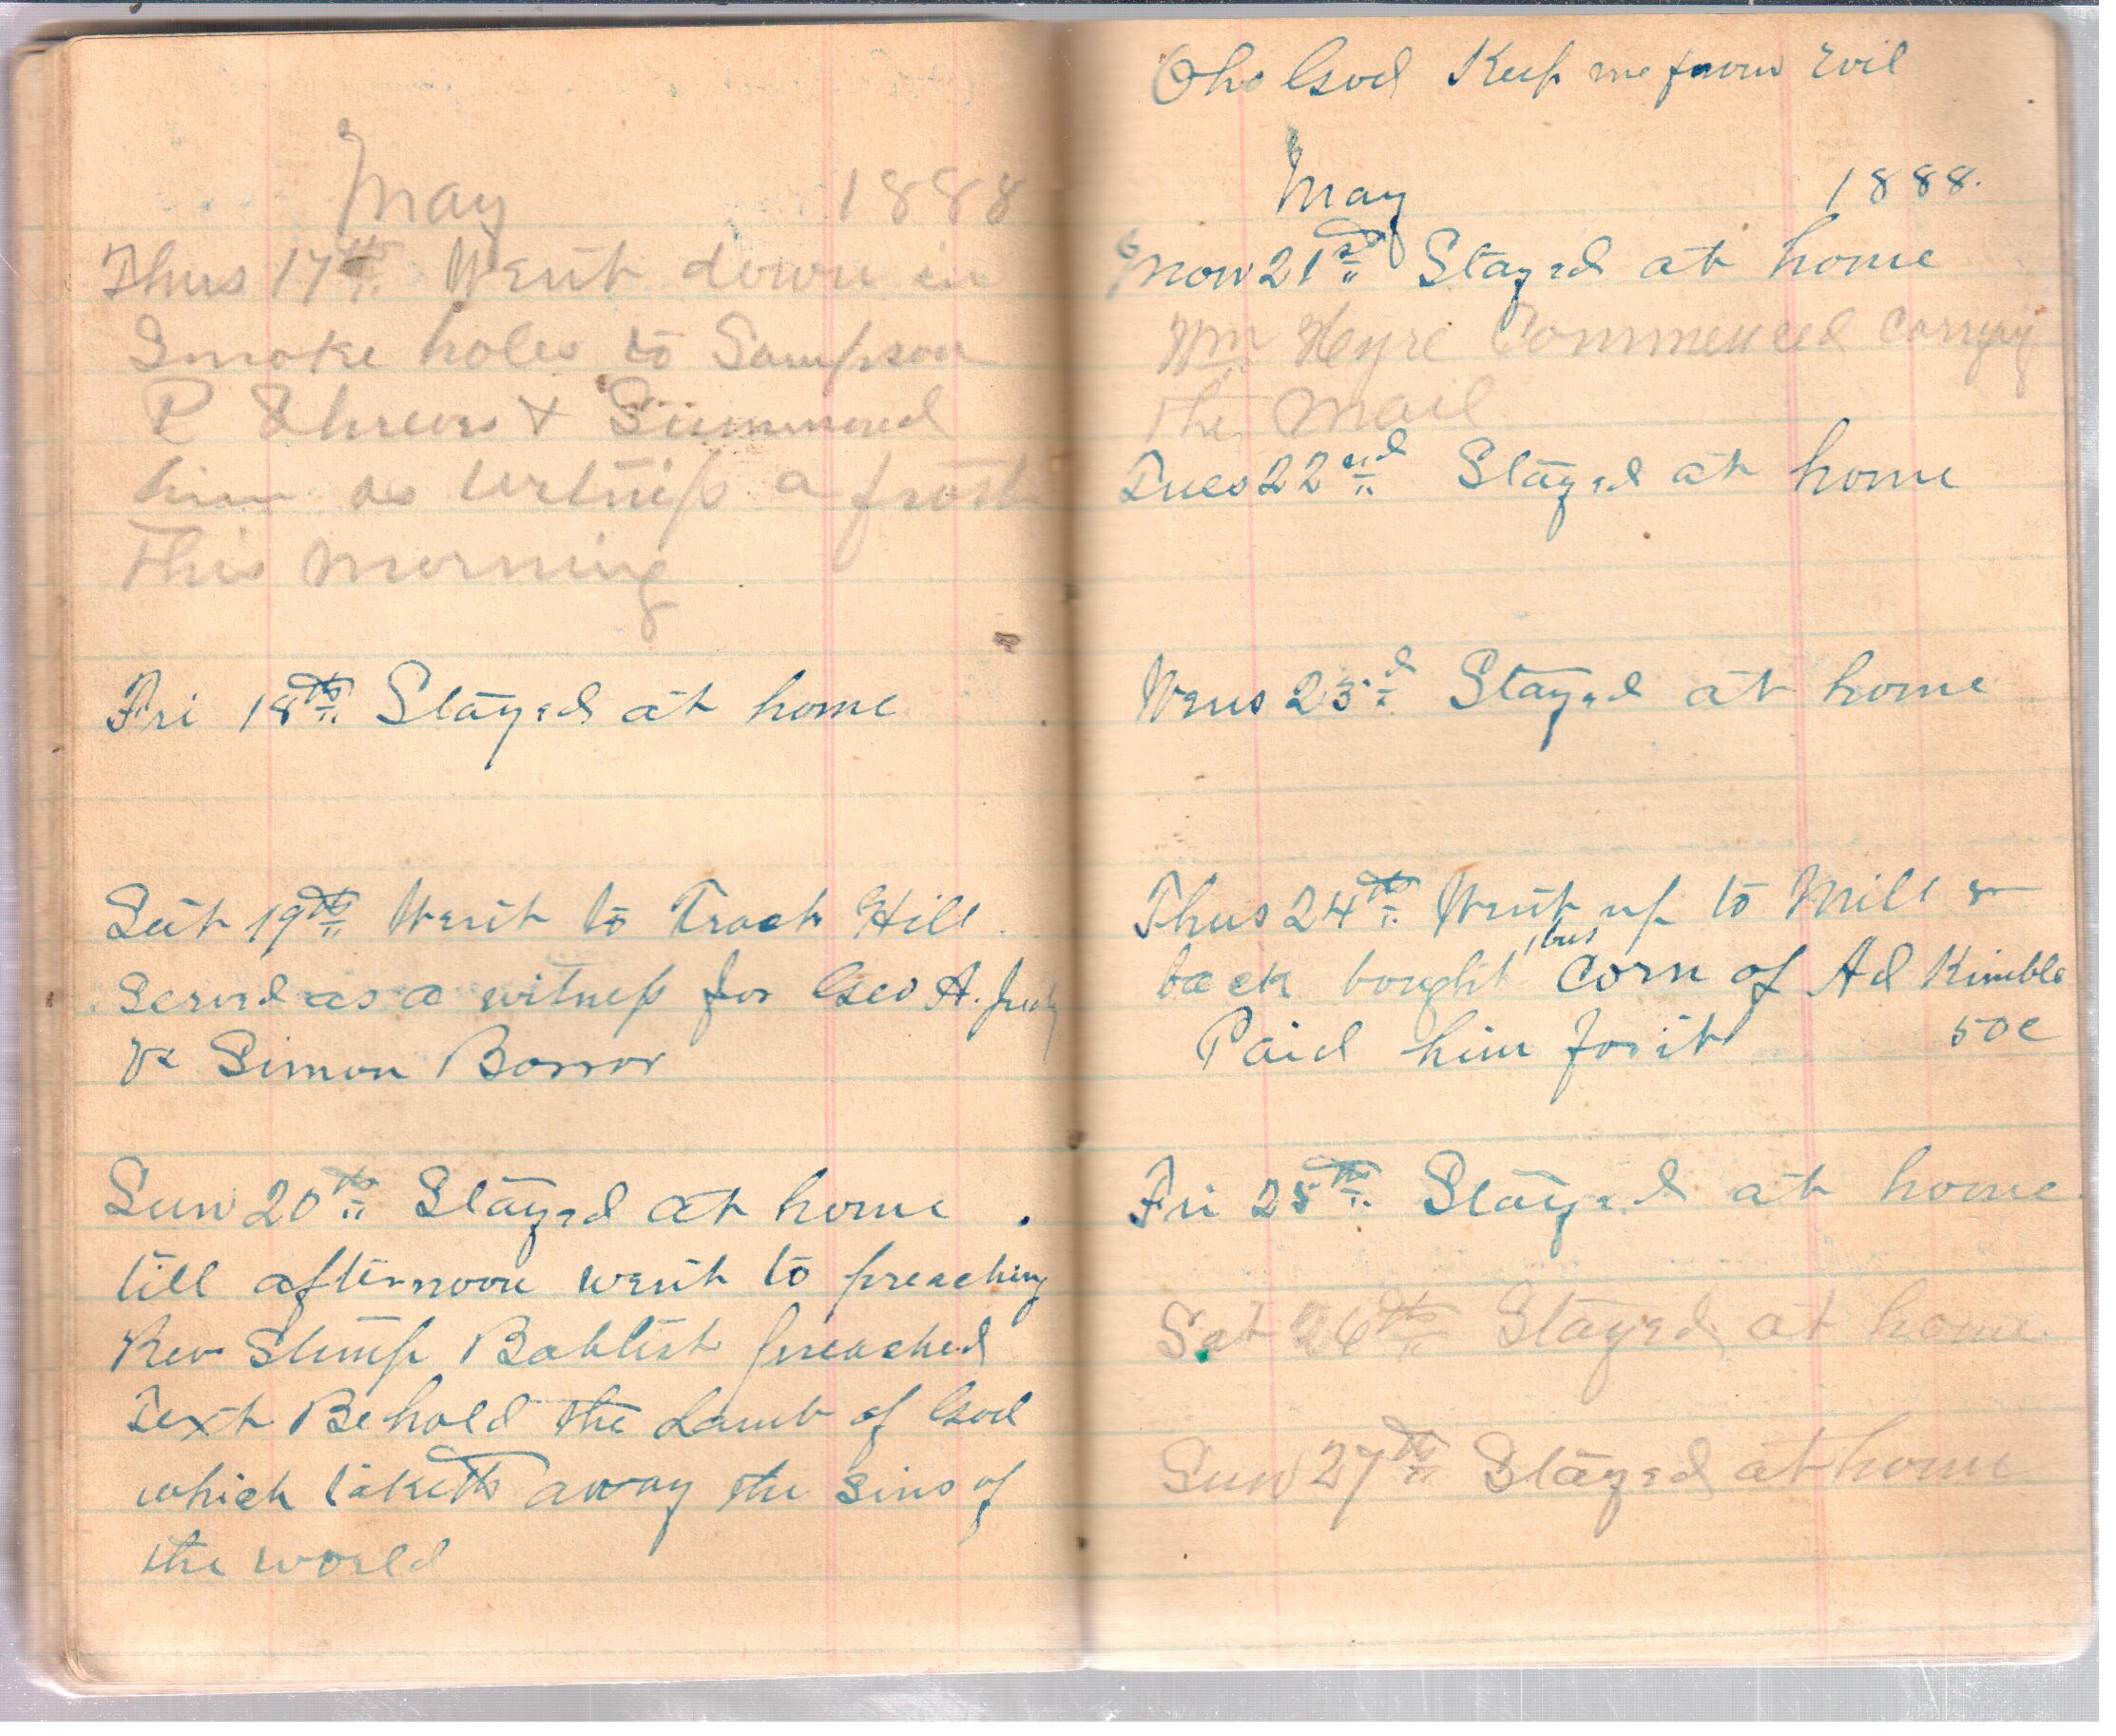 May 1888
Thus 17th Went down in
Smoke holes to Sampson
P Shreve & Summoned
him as witness a frost
This morning
Fri 18th Stayed at home
Sat 19th Went to Track Hill
Served as a witness for Geo A. Judy
vs Simon Borror
Sun 20th Stayed at home
till afternoon went to preaching
Rev Stump Babtist preached
Text Behold the Lamb of God
which taketh away the sins of
the world
Oho God Keep me from Evil
May 1888.
Mon 21st Stayed at home
Wm Commenced Carrying
the Mail
Tues 22nd Stayed at home
Wens 23d Stayed at home
Thus 24th Went up to Mill &
1 bus
back bought Corn of Ad Kimble
Paid him for it 50c
Fri 25th Stayed at home
Sat 26th Stayed at home
Sun 27th Stayed at home